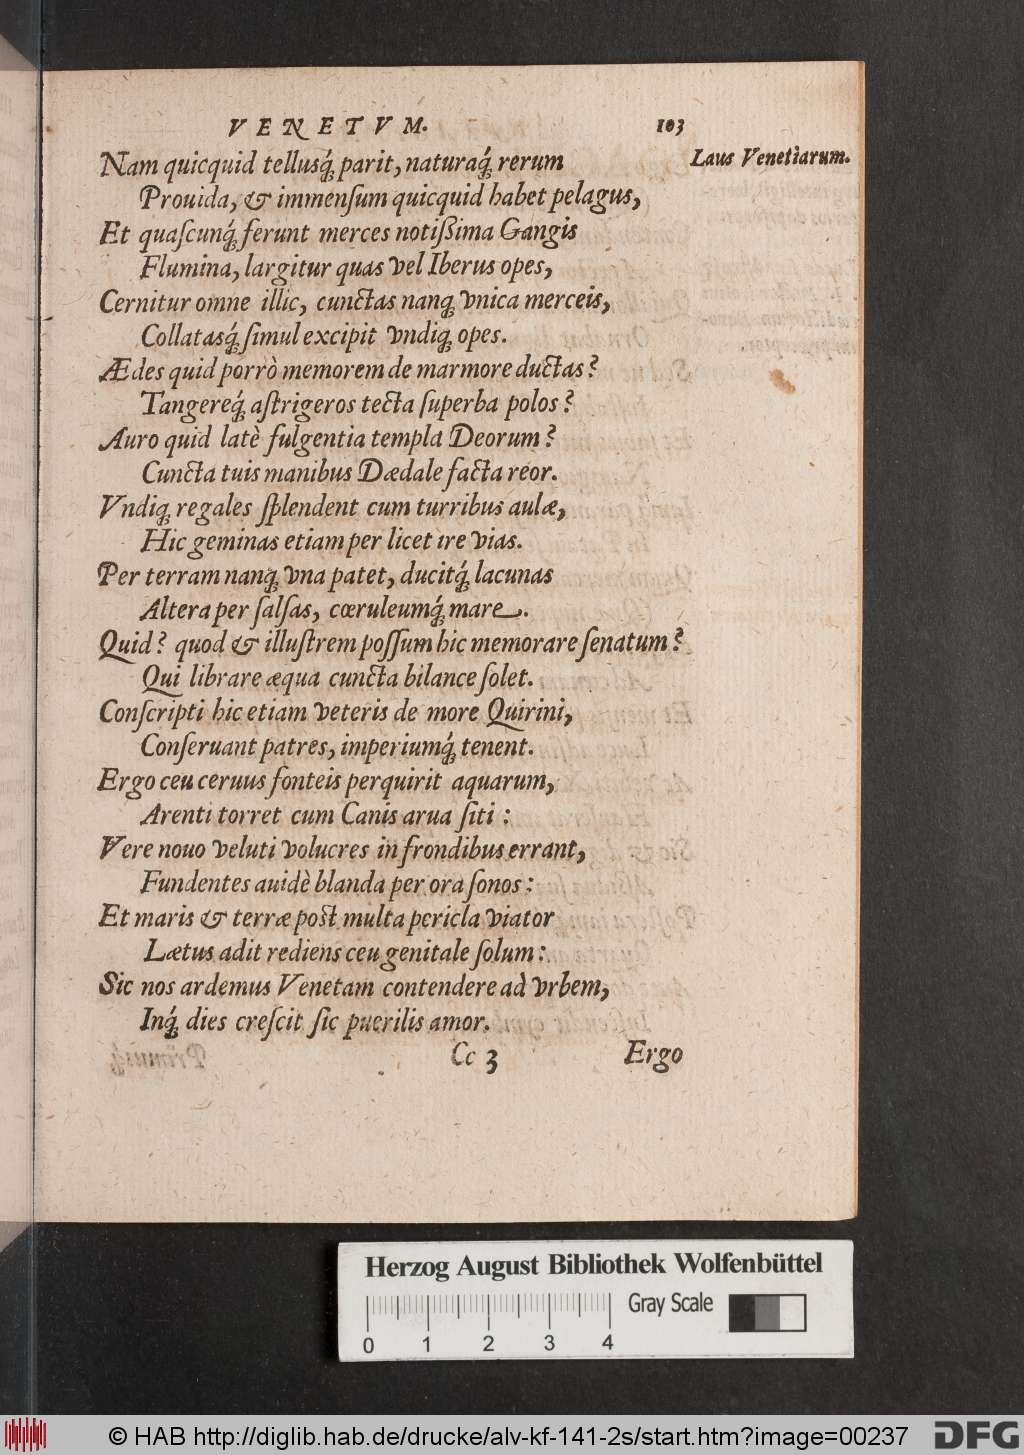 VENETVM. 103
Laus Venetiarum.
Nam quicquid tellusq́; parit, naturaq́; rerum
Prouida, & immensum quicquid habet pelagus,
Et quascunq́; ferunt merces notißima Gangis
Flumina, largitur quas vel Iberus opes,
Cernitur omne illic, cunctas nanq; vnica merceis,
Collatasq́; simul excipit vndiq; opes.
Ædes quid porrò memorem de marmore ductas?
Tangereq́; astrigeros tecta superba polos?
Auro quid latè fulgentia templa Deorum?
Cuncta tuis manibus Dædale facta reor.
Vndiq; regales splendent cum turribus aulæ,
Hic geminas etiam per licet ire vias.
Per terram nanq; vna patet, ducitq́; lacunas
Altera per salsas, cœruleumq́; mare.
Quid? quod & illustrem possum hic memorare senatum?
Qui librare æqua cuncta bilance solet.
Conscripti hic etiam veteris de more Quirini,
Conseruant patres, imperiumq́; tenent.
Ergo ceu ceruus fonteis perquirit aquarum,
Arenti torret cum Canis arua siti:
Vere nouo veluti volucres in frondibus errant,
Fundentes auidè blanda per ora sonos:
Et maris & terræ post multa pericla viator
Lætus adit rediens ceu genitale solum:
Sic nos ardemus Venetam contendere ad vrbem,
Inq́; dies crescit sic puerilis amor.
Cc 3 Ergo
Herzog August Bibliothek Wolfenbüttel
Gray Scale
0 1 2 3 4
© HAB http://diglib.hab.de/drucke/alv-kf-141-2s/start.htm?image=00237
DFG